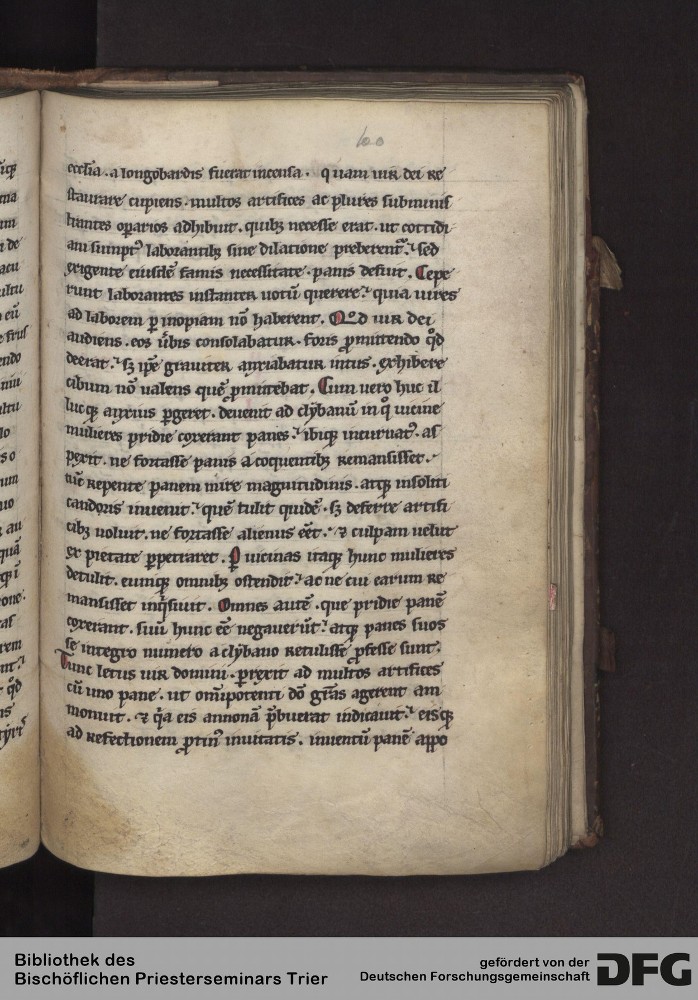 100
eccl̅ia . a longobardis fuerat incensa . quam uir dei re
staurare cupiens . multos artifices ac plures subminis
trantes op̲arios adhibuit . quibꝫ necesse erat . ut cottidi
ani sumptꝰ laborantibꝫ sine dilatione preberent᷑ . sed
exigente eiusdē famis necessitate . panis defuit . Cepe
runt laborantes instanter uotū querere . quia uires
ad laborem ꝑ inopiam nō haberent . Qd̊ uir dei
audiens . eos ūbis consolabatur . foris ꝓmittendo qd̊
deerat . sꝫ ip̄e grauiter anxiabatur intus . exhibere
cibum nō ualens quē ꝓmittebat . Cum uero huc il
lucqꝫ anxius ꝑgeret . deuenit ad clybanū in qͦ uicine
mulieres pridie coxerant panes . ibiqꝫ incuruatꝰ . as
pexit . ne fortasse panis a coquentibꝫ remansisset .
tūc repente panem mire magnitudinis . atqꝫ insoliti
candoris inuenit . quē tulit quidē . sꝫ deferre artifi
cibꝫ noluit . ne fortasse alienus eēt . ⁊ culpam uelut
ex pietate ꝑpetraret . P uicinas itaqꝫ hunc mulieres
detulit . eumqꝫ omnibꝫ ostendit . ac ne cui earum re
mansisset inqͥsiuit . Omnes autē . que pridie panē
coxerant . suū hunc eē negauerūt . atqꝫ panes suos
se integro numero a clybano retulisse ꝓfesse sunt .
Tunc letus uir domini . ꝑrexit ad multos artifices
cū uno pane . ut om̅ipotenti dō gr̅as agerent am
monuit . ⁊ qͥa eis annonā p̄buerat indicauit . eisqꝫ
ad refectionem ꝓtinꝰ inuitatis . inuentū panē appo
Bibliothek des
Bischöflichen Priesterseminars Trier
gefördert von der
Deutschen Forschungsgemeinschaft
DFG